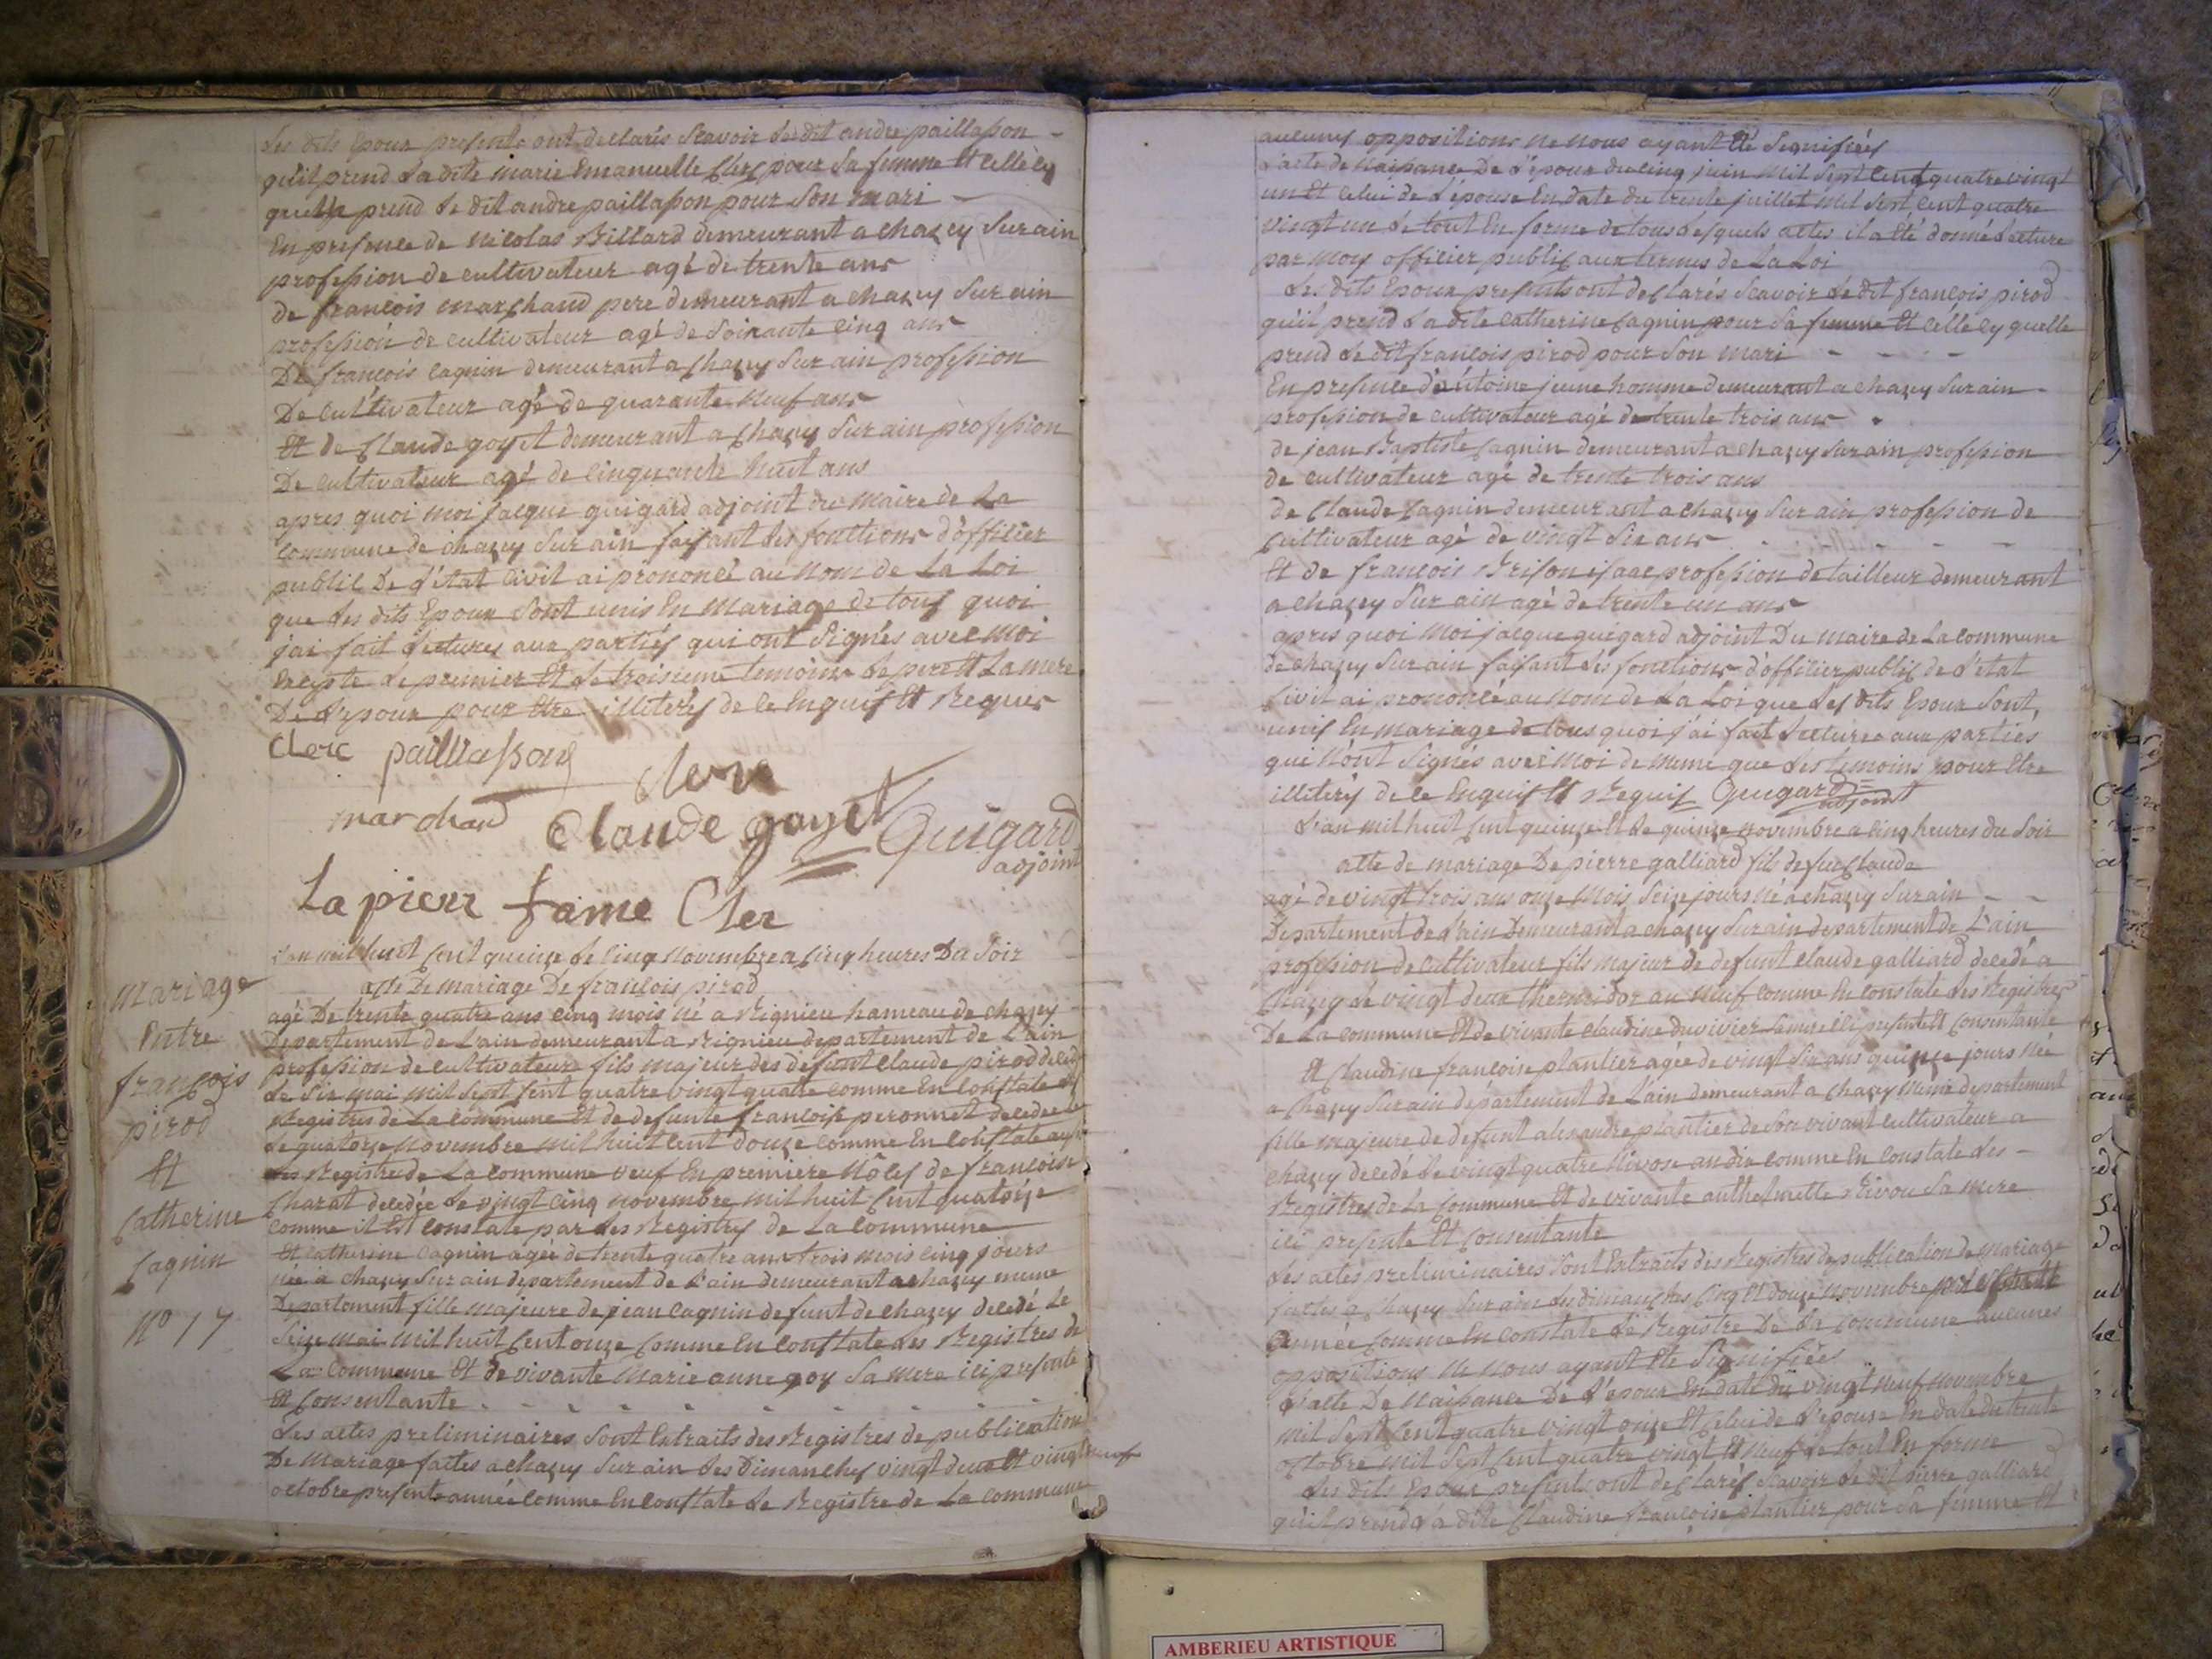 Les dits Epoux presents ont declarés Scavoir Le dit andre paillasson
qu'il prend La dite marie Emanuelle Clerc pour Sa femme Et celle cy
quelle prend Le dit andre paillasson pour Son mari
En presence de nicolas Billard demeurant a chazey Sur ain
profession de cultivateur agé de trente ans
de françois marchand pere demeurant a chazey Sur ain
profession de cultivateur agé de Soixante cinq ans
De françois cagnin demeurant a chazey Sur ain profession
De cultivateur agé de quarante Neuf ans
Et de Claude goyet demeurant a chazey Sur ain profession
De cultivateur agé de cinquante huit ans
apres quoi moi jacque guigard adjoint du maire de La
commune de chazey Sur ain faisant Les fonctions d'officier
public De L'état civil ai prononcé au Nom de La Loi
que Les dits Epoux Sont unis En Mariage de tous quoi
j'ai fait Lectures aux parties qui ont Signés avec Moi
Excepte Le premier Et Le troisieme temoins Le pere Et La mere
De L'epoux pour Etre illiterés de ce Enquis Et Requis
Clerc paillasson
Clerc
marchand
Claude goyet Guigard
adjoint
La pierr fame Cler
L'an mil huit Cent quinze Le cinq Novembre a Cinq heures Du Soir
acte De Mariage De françois pirod
agé De trente quatre ans cinq mois né a Rignieu hameau de chazey
Departement de L'ain demeurant a Rignieu departement de L'ain
profession de cultivateur fils majeur des defunt Claude pirod decedé
Le Six mai mil Sept Cent quatre vingt quatre comme En Constate les
Registres de La commune Et de defunte françoise peronnet decedée
Le quatorze Novembre mil huit cent douze comme En Constate aussi
Les Registre de La commune veuf En premiere Nôces de françoise
Charat decedée Le vingt cinq novembre mil huit Cent quatorze
comme il Est constate par Les Registres de La commune
Et catherine cagnin agée de trente quatre ans trois mois cinq jours
née a chazey Sur ain departement de L'ain demeurant a chazey meme
Departement fille majeure de jean cagnin defunt de chazey decedé Le
Seize mai mil huit Cent onze Comme En Constate Les Registres de
La Commune Et de vivante Marie anne goy Sa mere ici presente
Et Consentante
Les actes preliminaires Sont Extraits des Registres de publication
De Mariage faites a chazey Sur ain Les Dimanches vingt deux Et vingt neuf
octobre presente année comme En Constate Le Registre de La commune
Mariage
Entre
françois
pirod
Et
Catherine
Cagnin
No 17
aucunes oppositions Ne Nous ayant Eté Signifiées
L'acte de Naissance De L'epoux du cinq juin Mil Sept Cent quatre vingt
un Et Celui de L'épouse En date du trente juillet Mil Sept cent quatre
vingt un Le tout En forme de tous Lesquels actes il a Eté donné Lecture
par moy officier public aux termes de La Loi
Les dits Epoux presents ont declarés Scavoir Le dit françois pirod
qu'il prend La dite catherine Cagnin pour Sa femme Et celle cy quelle
prend Le dit françois pirod pour Son Mari
En presence d'antoine jeune homme demeurant a chazey Sur ain
profession de cultivateur agé de trente trois ans
de jean Baptiste Cagnin demeurant a chazey Sur ain profession
de cultivateur agé de trente trois ans
de Claude Cagnin demeurant a chazey Sur ain profession de
Cultivateur agé de vingt Six ans
Et de françois Brison isaac profession de tailleur demeurant
a chazey Sur ain agé de trente un ans
apres quoi Moi jacque guigard adjoint Du Maire de La commune
de chazey Sur ain faisant Les fonctions d'officier public de L'etat
Civil ai prononcé au Nom de La Loi que Les dits Epoux Sont
unis En Mariage de tous quoi j'ai fait Lectures aux parties
qui N'ont Signés avec Moi de meme que Les temoins pour Etre
illiterés de ce Enquis Et Requis Guigard
adjoint
L'an mil huit Cent quinze Et Le quinze novembre a cinq heures du Soir
acte de mariage De pierre galliard fils de feu Claude
agé de vingt trois ans onze Mois Seize jours Né a chazey Sur ain
Departement de L'ain Demeurant a chazey Sur ain departement de L'ain
profession de Cultivateur fils majeur de defunt claude galliard decedé a
Chazey Le vingt deux thermidor an Neuf comme En Constate Les Registres
De La commune Et de vivante claudine duvivier Sa mere ici presente Et Consentante
Et Claudine françoise plantier agée de vingt Six ans quinze jours Née
a Chazey Sur ain département de L'ain demeurant a Chazey Meme departement
fille majeure de defunt alexandre plantier de Son vivant cultivateur a
chazey decedé Le vingt quatre Nivose an dix comme En Constate Les
Registres de La Commune Et de vivante anthelmette Rivou Sa mere
ici presente Et Consentante
Les actes preliminaires Sont Extraits des Registres de publication de mariage
faites a Chazey Sur ain Les dimanches Cinq Et douze Novembre presente
année Comme En Constate Le Registre De La Commune aucunes
oppositions Ne Nous ayant Ete Signifiées
L'acte De Naissance De L'epoux En date du vingt Neuf Novembre
mil Sept Cent quatre vingt onze Et Celui de L'epouse En date du trente
octobre mil Sept Cent quatre vingt Et Neuf Le tout En forme
Les dits Epoux presents ont declarés Scavoir Le dit pierre galliard
qu'il prend La dite Claudine françoise plantier pour Sa femme Et
AMBERIEU ARTISTIQUE